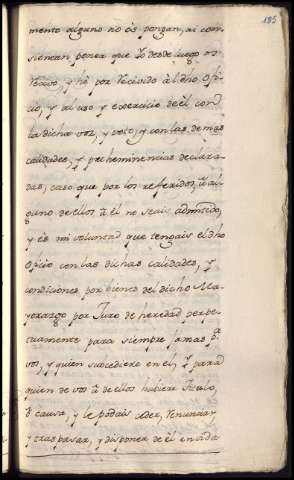 185
mento alguno no ôs pongan, ni con
sientan poner que Yo desde luego os
recivo, y hé por recivido al dho ofi
cio, y al uso y exercicio de él con
la dicha voz, y voto, y con las demas
calidades, y preheminencias declara
das, caso que por los referidos, û al
guno de ellos â él no seais admitido,
y és mi voluntad que tengais el dho
Oficio con las dichas calidades, y
condiciones por bienes del dicho Ma
yorazgo por Juro de heredad perpe
tuamente para siempre jamas pª
vos, y quien subcediere en el, y para
quien de vos û de ellos hubiere titulo,
ô causa, y le podais ceder, renunciar,
y traspasar, y disponer de él en vida